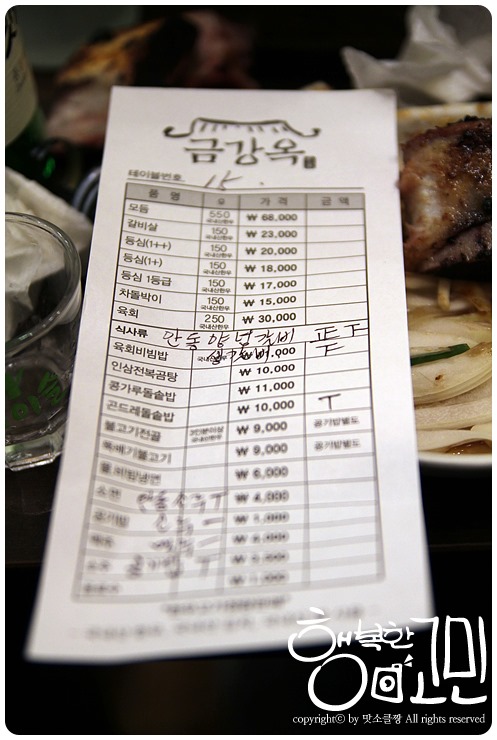 금강옥
테이블번호. 15.
품 명 g 가 격 금 액
모듬 550 국내산한우 ₩ 68,000
갈비살 150 국내산한우 ₩ 23,000
등심(1++) 150 국내산한우 ₩ 20,000
등심(1+) 150 국내산한우 ₩ 18,000
등심 1등급 150 국내산한우 ₩ 17,000
차돌박이 150 국내산한우 ₩ 15,000
육회 250 국내산한우 ₩ 30,000
식사류 안동 양념갈비
육회비빔밥 국내산한우
인삼전복곰탕 ₩ 10,000
콩가루돌솥밥 ₩ 11,000
곤드레돌솥밥 ₩ 10,000 T
불고기전골 2인분이상 국내산한우 ₩ 9,000 공기밥별도
뚝배기불고기 ₩ 9,000 공기밥별도
물,비빔냉면 ₩ 6,000
소면 안동소주 T ₩ 4,000
공기밥 ₩ 1,000
공기밥 T
행복한 고민
copyrightⓒ by 맛소클짱 All rights reserved